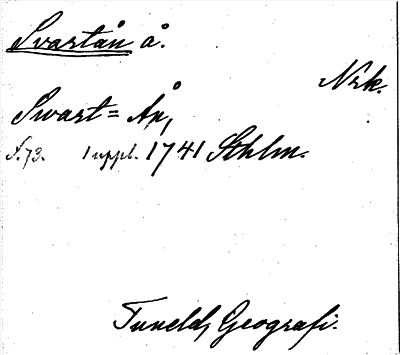 Svartån å.
Nrk.
Swart=Ån,
S.73. 1 uppl. 1741 Sthlm.
Tuneld, Geografi.